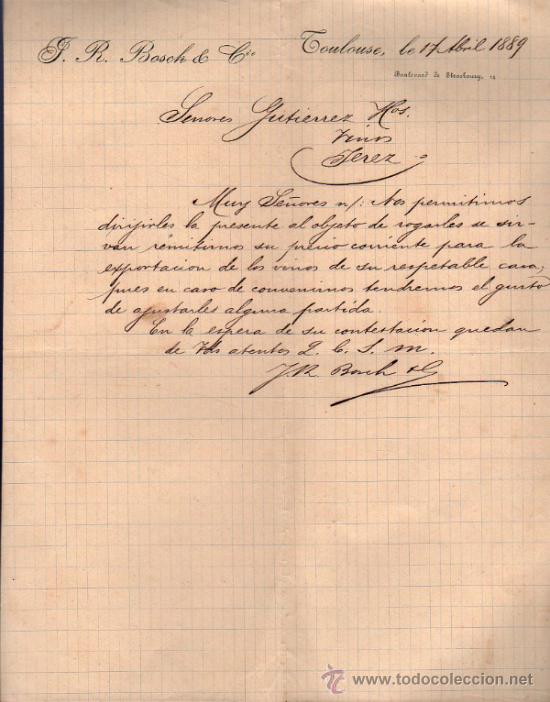 J. R. Bosch & Cie Toulouse, le 17 Abril 1889
Boulevard de Strasbourg,
Señores Gutierrez Hos.
Vinos
Jerez
Muy Señores n/: Nos permitimos
dirijirles la presente al objeto de rogarles se sir-
van remitirnos su precio corriente para la
exportacion de los vinos de su respetable casa,
pues en caso de convenirnos tendremos el gusto
de ajustarles alguna partida.
En la espera de su contestacion quedan
de Vds atentos Q. B. S. M.
J. R. Bosch & C
TC www.todocoleccion.net